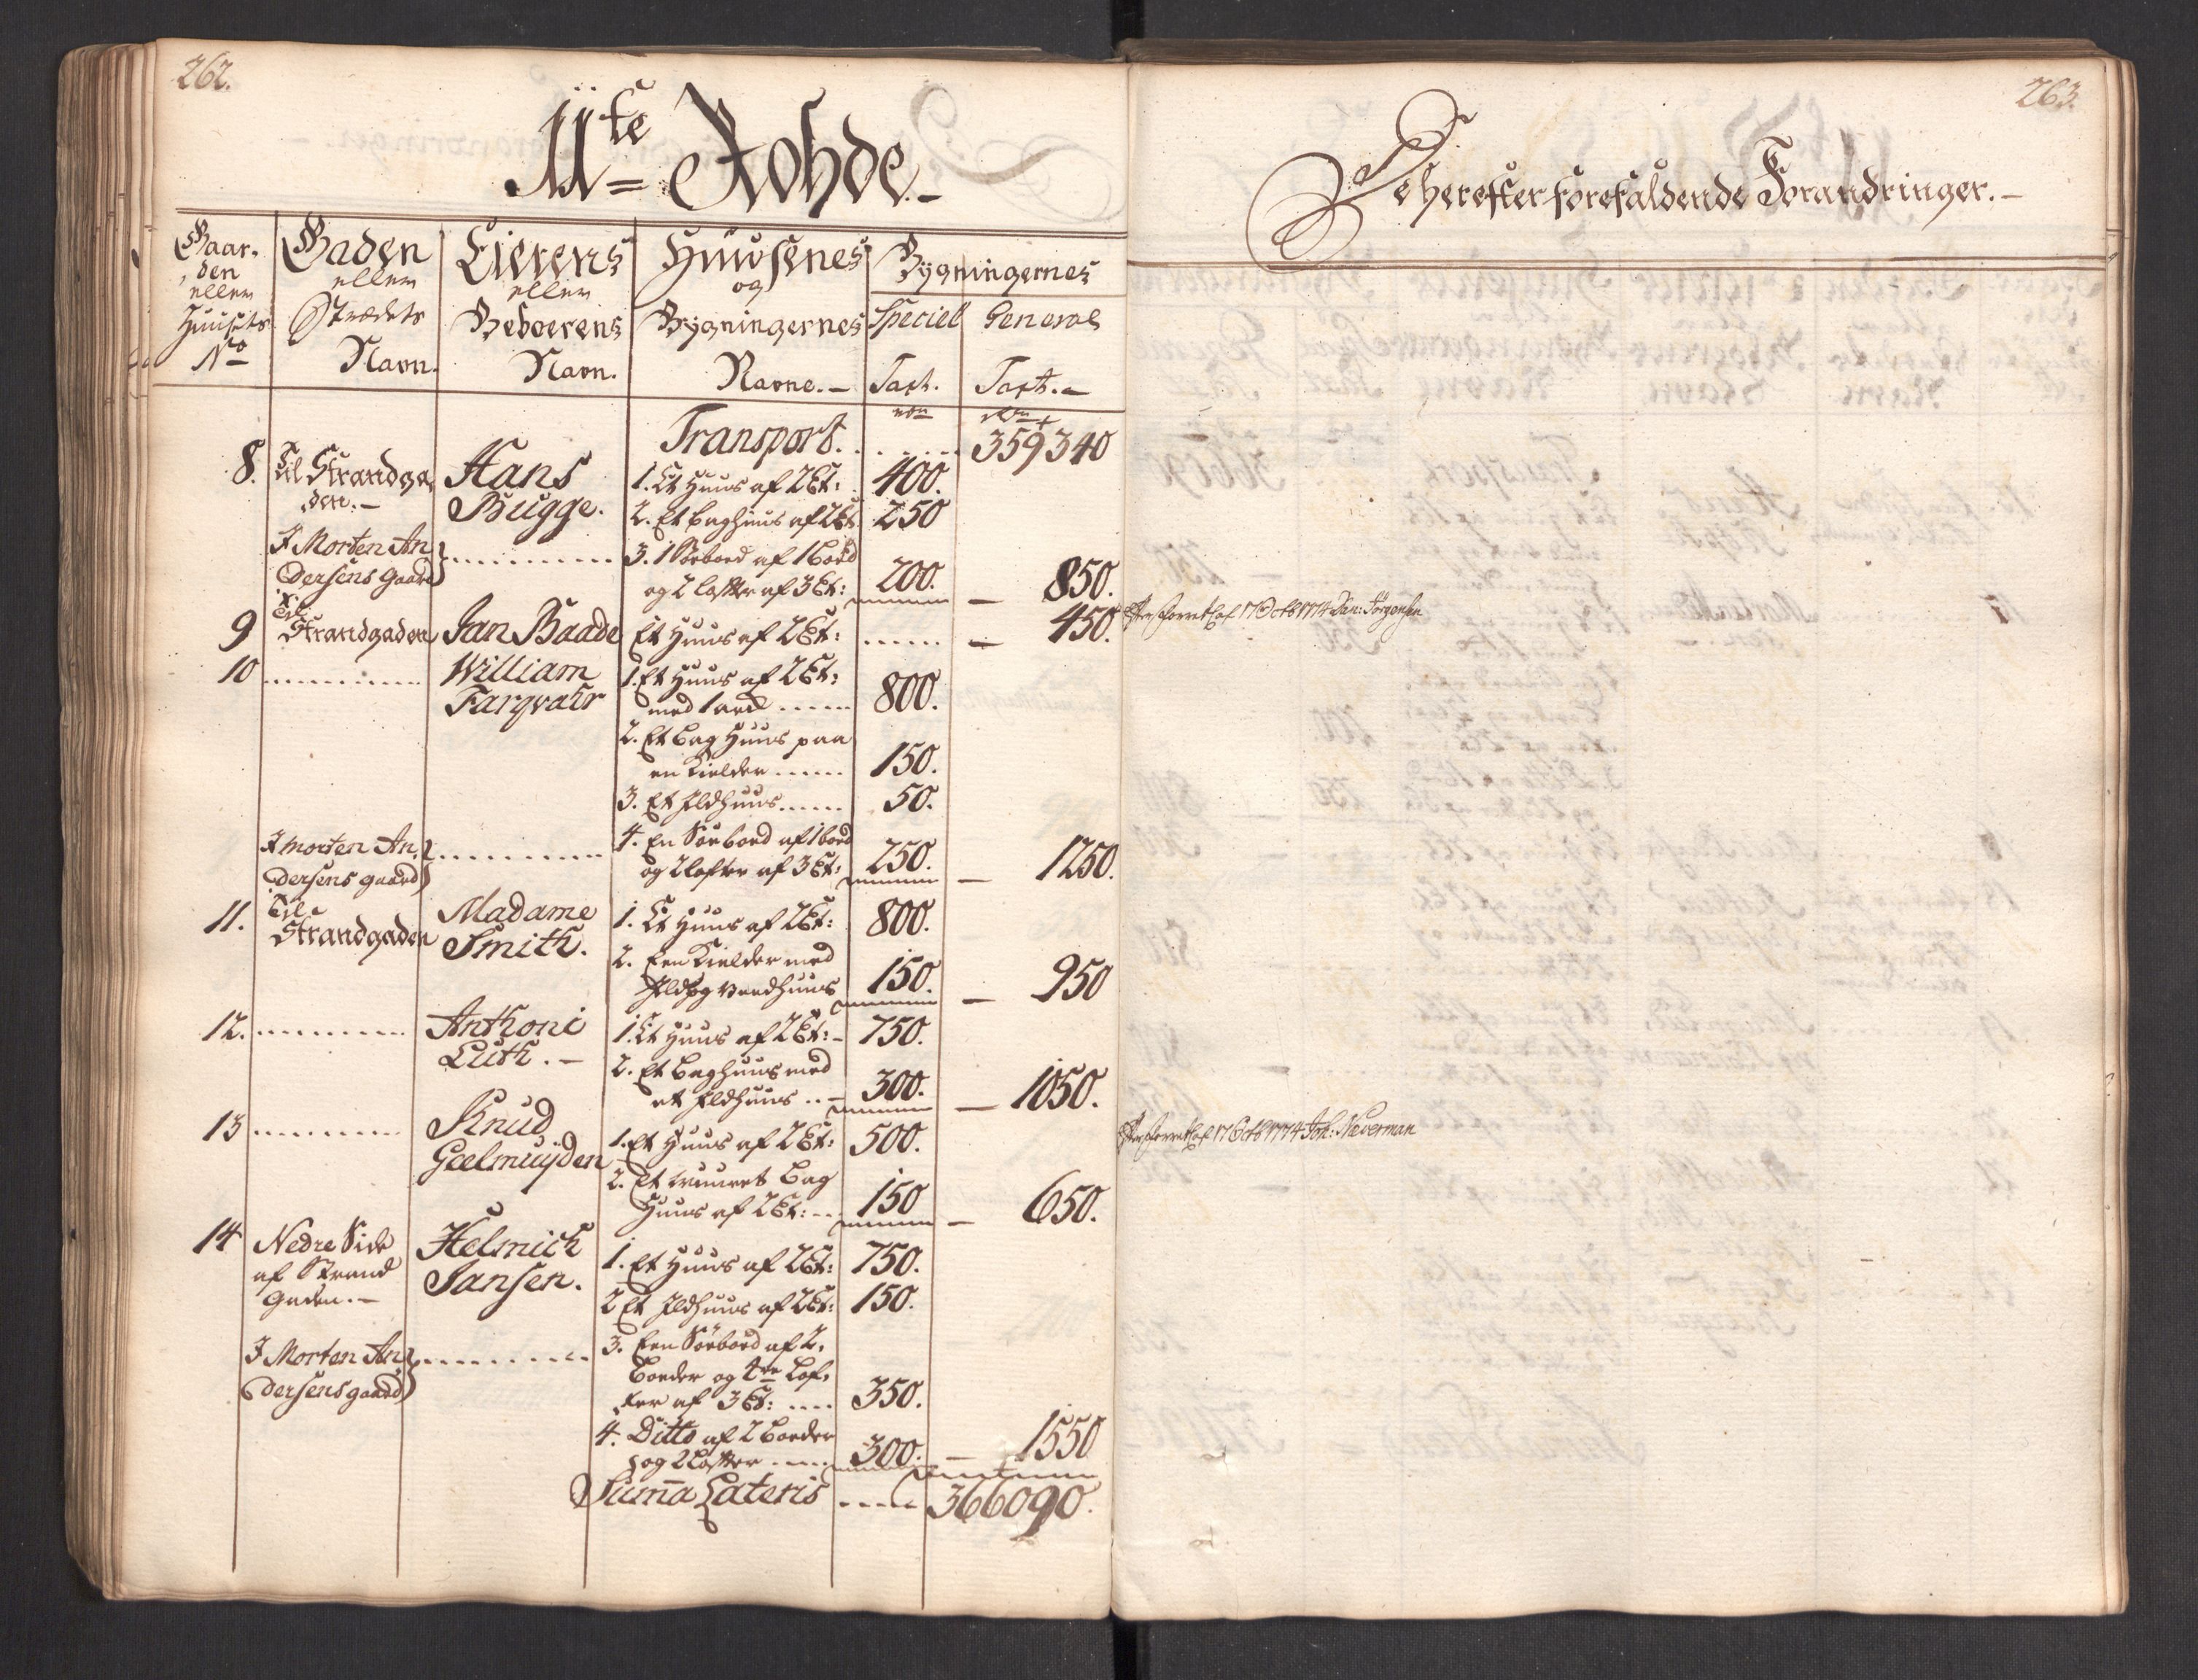 262.
11te Rohde.
Gaar-
den
eller
Huusets
No
Gaden
eller
Strædets
Navn.
Eierens
eller
Beboerens
Navn.
Huusenes
og
Bygningernes
Navne.
Bygningernes
Speciel
Taxt.
General
Taxt.
Transport. . . . . . 359340
8. Til Strandga
den.
Hans
Bugge.
1. Et Huus af 2 Et: 400.
2. Et Baghuus af 2 Et. 250
I Morten An
dersens Gaard
3. 1 Søebood af 1 Bood
og 2 Lofter af 3 Et: 200. 850.
9 Til
Strandgaden Jan Baade Et Huus af 2 Et: 450.
10 William
Farqvahr
1. Et Huus af 2 Et:
med 800.
2. Et Bag Huus paa
en Kielder 150.
3. Et Ildhuus 50.
I Morten An
dersens gaard
4. En Søebood af 1 bood
og 2 lofter af 3 Et: 250. 1250.
11. Til
Strandgaden
Madame
Smith.
1. Et Huus af 2 Et: 800.
2. Een Kielder med
Ild og Vredhuus 150. 950
12. Anthoni
Luth.
1. Et Huus af 2 Et: 750.
2. Et Baghuus med
et Ildhuus 300. 1050.
13 Knud
Geelmuyden
1. Et Huus af 2 Et: 500.
2. Et muuret Bag
Huus af 2 Et: 150 650.
14 Nedre Side
af Strand
Gaden.
Helmich
Jansen.
1. Et Huus af 2 Et: 750.
2 Et Ildhuus af 2 Et: 150.
I Morten An
dersens gaard
3. Een Søebood af 2.
Boeder og Lof,
ter af 3 Et: 350.
4. Ditto af 2 Boeder
og 2 Lofter 300. 1550
Suma Lateris 366090.
263.
De herefter forefaldende Forandringer.
Efter Forretn. af 17 Octb 1774 Dan: Jørgensen
Efter Forretn. af 17 Octb 1774 Joh: Næverman